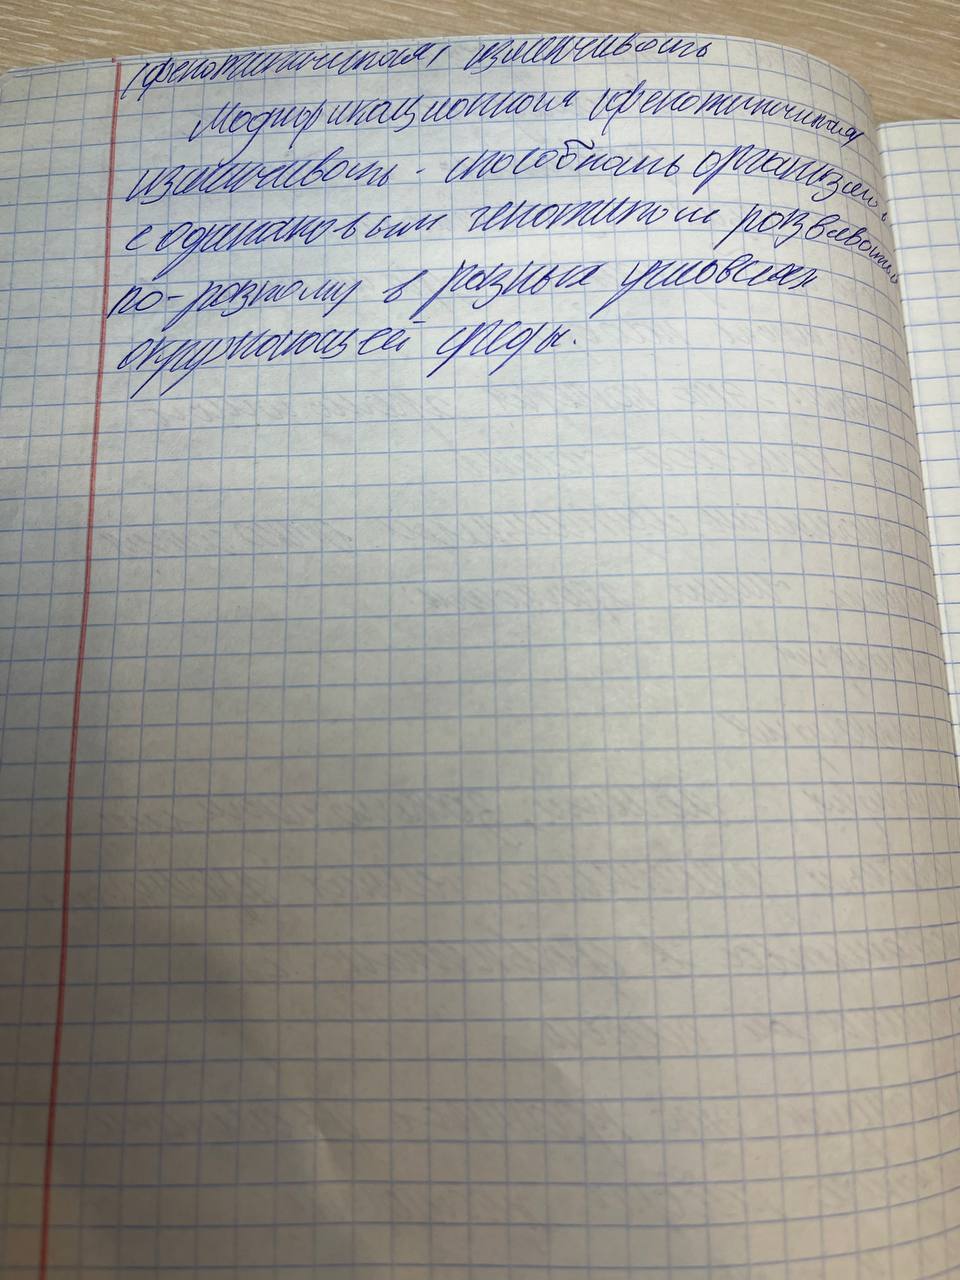 (фенотипичиская) изменчивость
Модификационная (фенотипичиская)
изменчивость - способность организмов
с одинаковым генотипом развиваться
по-разному в разных условиях
окружающей среды.